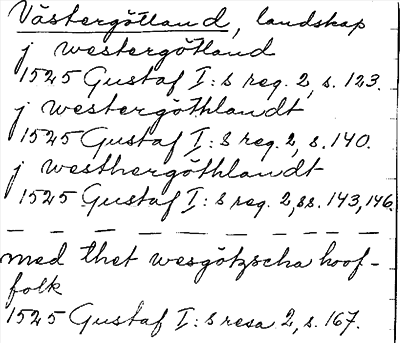 Västergötland, landskap
j westergötland
1525 Gustaf I:s reg. 2, s. 123.
j westergöthlandt
1525 Gustaf I:s reg. 2, s. 140.
j westhergöthlandt
1525 Gustaf I:s reg. 2, ss. 143, 146.
med thet wesgötzscha hoof-
folk
1525 Gustaf I:s resa 2, s. 167.